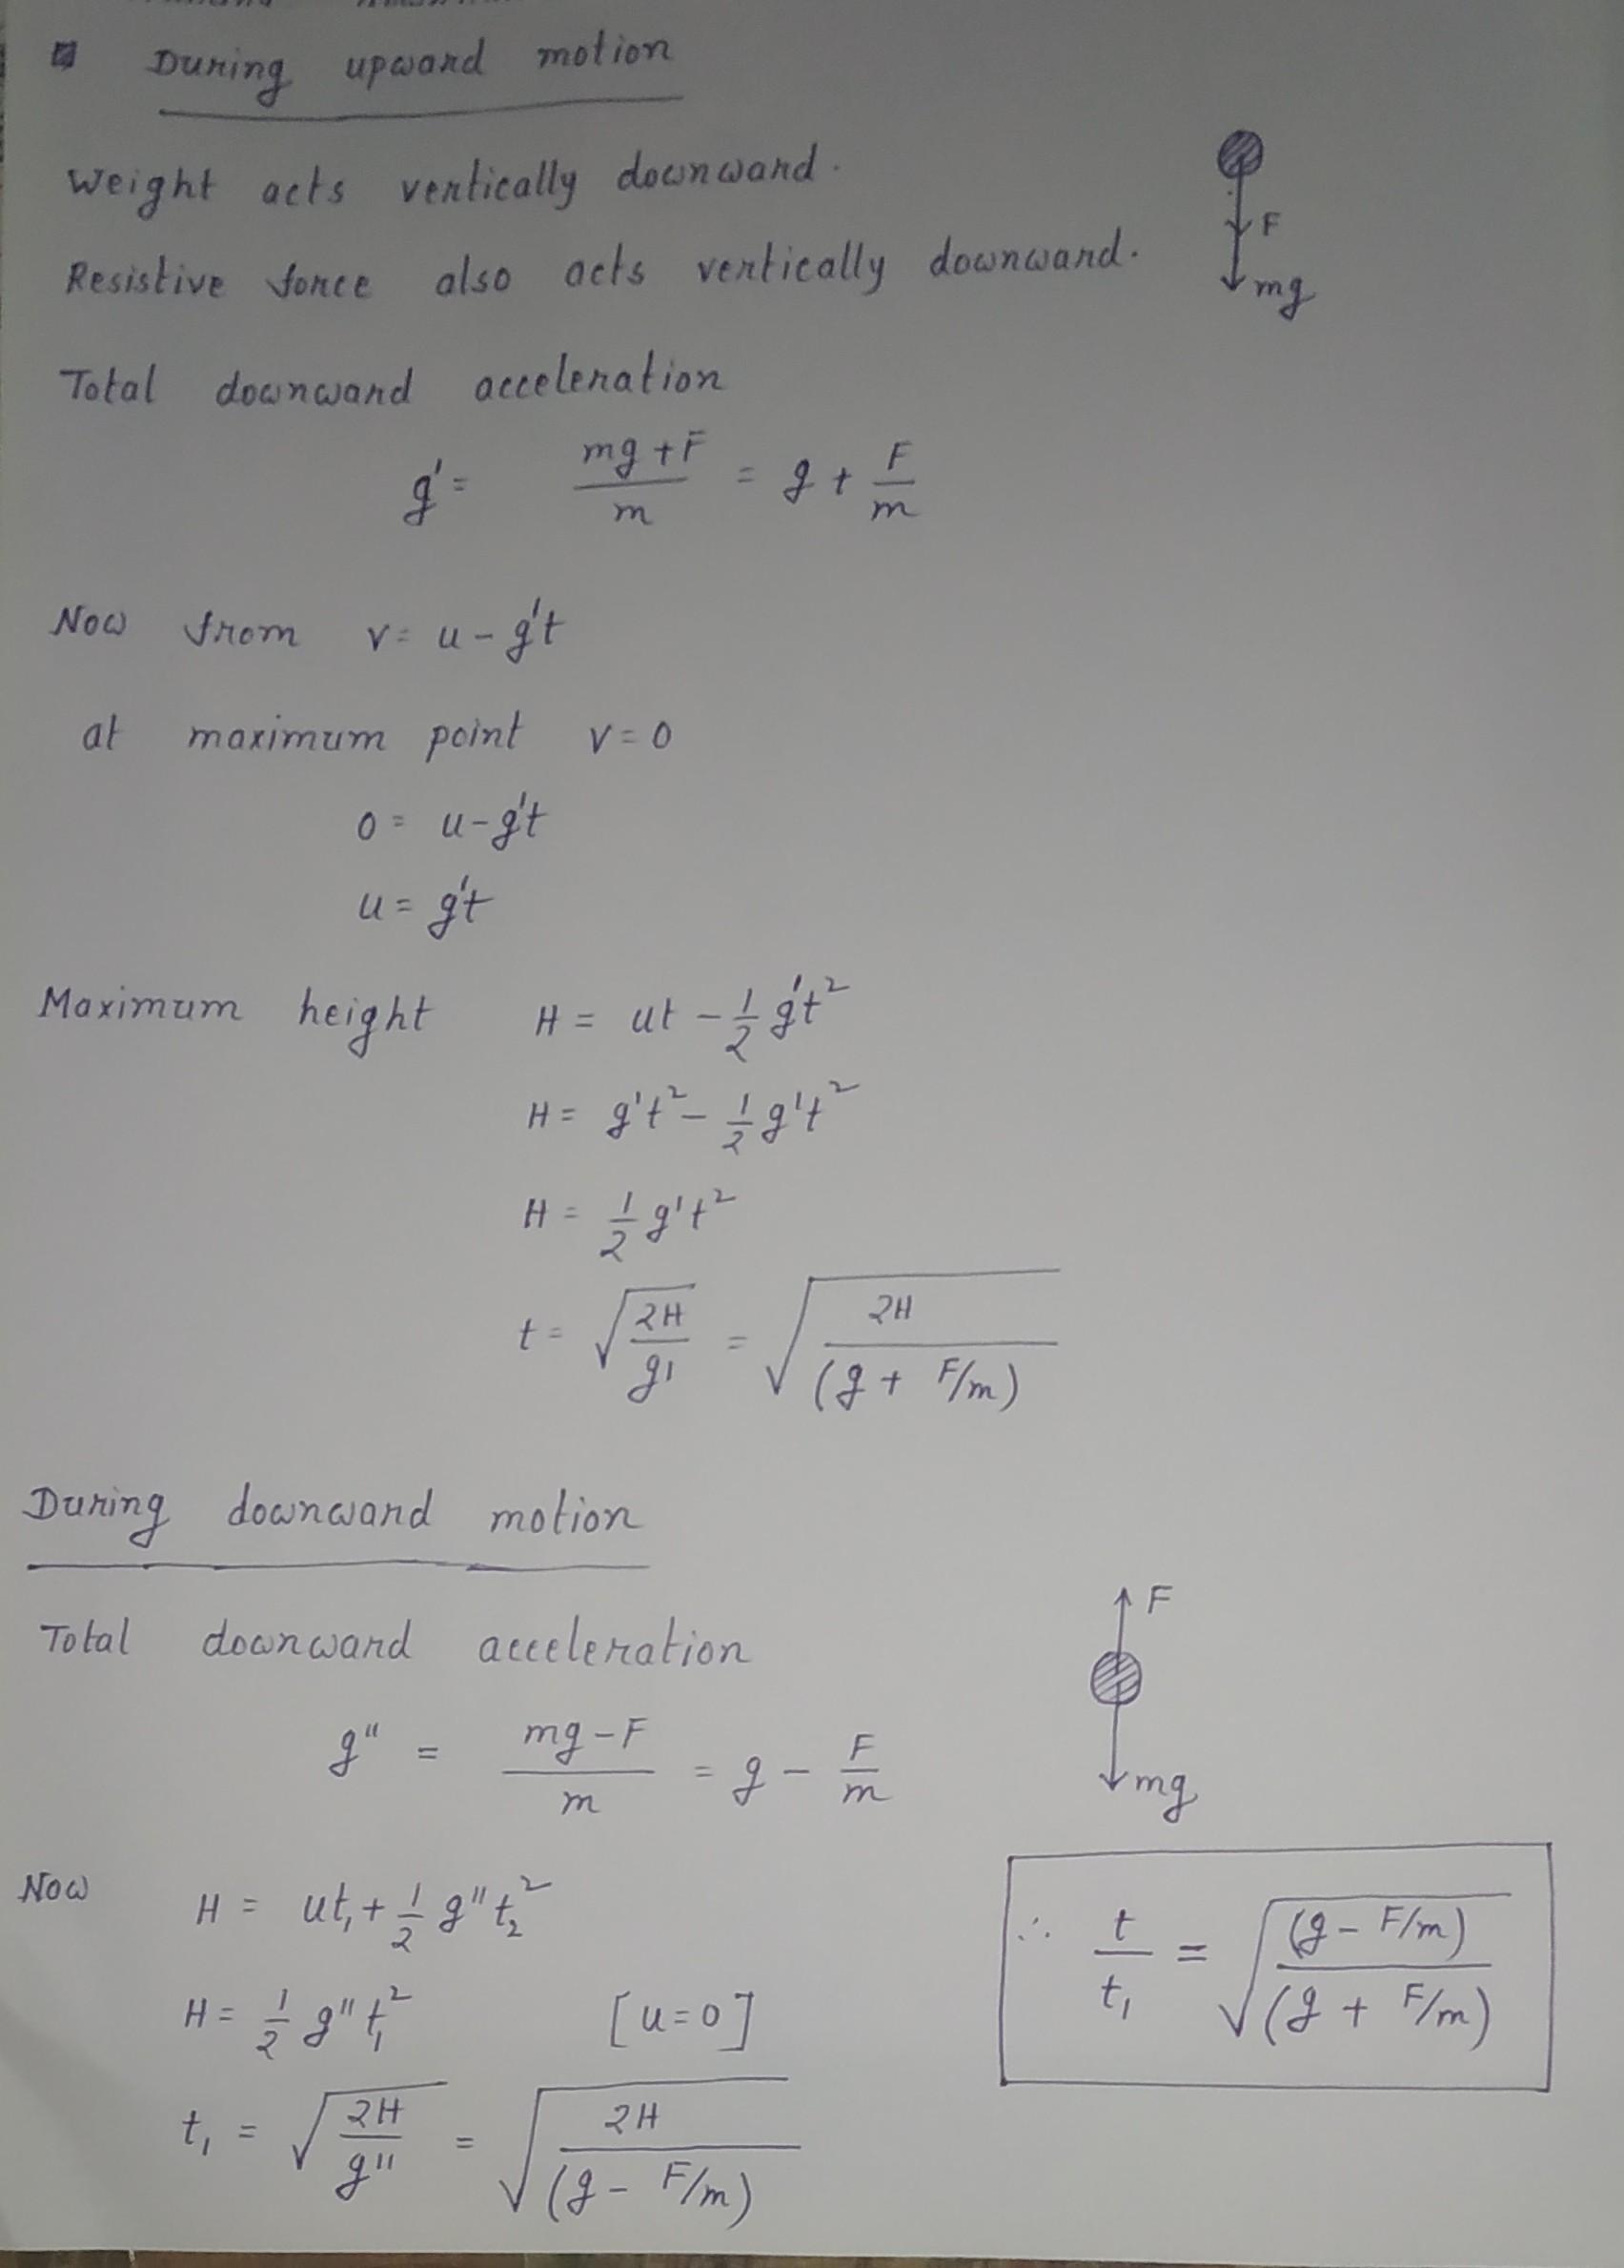 During upward motion
Weight acts vertically downward.
Resistive force also acts vertically downward.
F
mg
Total downward acceleration
g' = (mg + F)/m = g + F/m
Now from v = u - g't
at maximum point v = 0
0 = u - g't
u = g't
Maximum height H = ut - 1/2 g't²
H = g't² - 1/2 g't²
H = 1/2 g't²
t = √(2H/g') = √(2H/(g + F/m))
During downward motion
Total downward acceleration
F
mg
g'' = (mg - F)/m = g - F/m
Now H = ut₁ + 1/2 g'' t₂²
H = 1/2 g'' t₁² [u = 0]
t₁ = √(2H/g'') = √(2H/(g - F/m))
∴ t/t₁ = √((g - F/m)/(g + F/m))